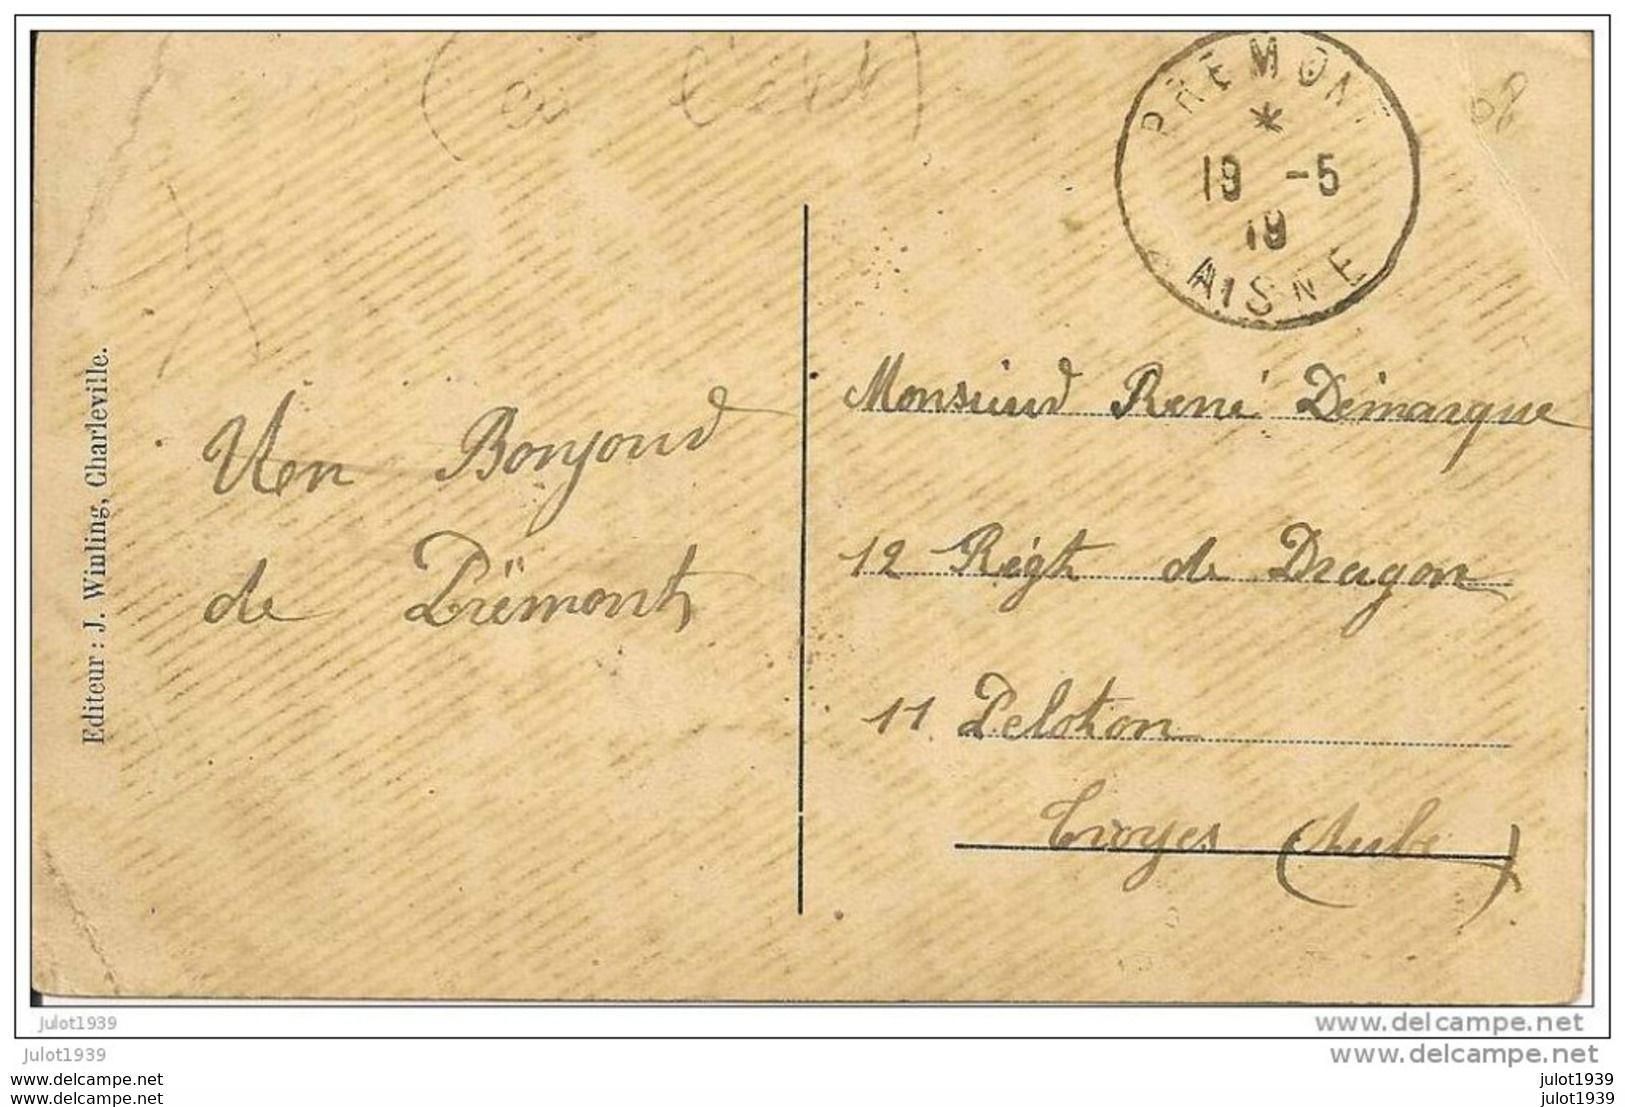 PRÉMONT
*
19 -5
19
AISNE
68
Editeur : J. Winling, Charleville.
Un Bonjour
de Prémont
Monsieur René Démarque
12 Régt de Dragon
11 Peloton
Troyes (Aube)
julot1939
www.delcampe.net
julot1939
www.delcampe.net
www.delcampe.net
www.delcampe.net
julot1939
julot1939